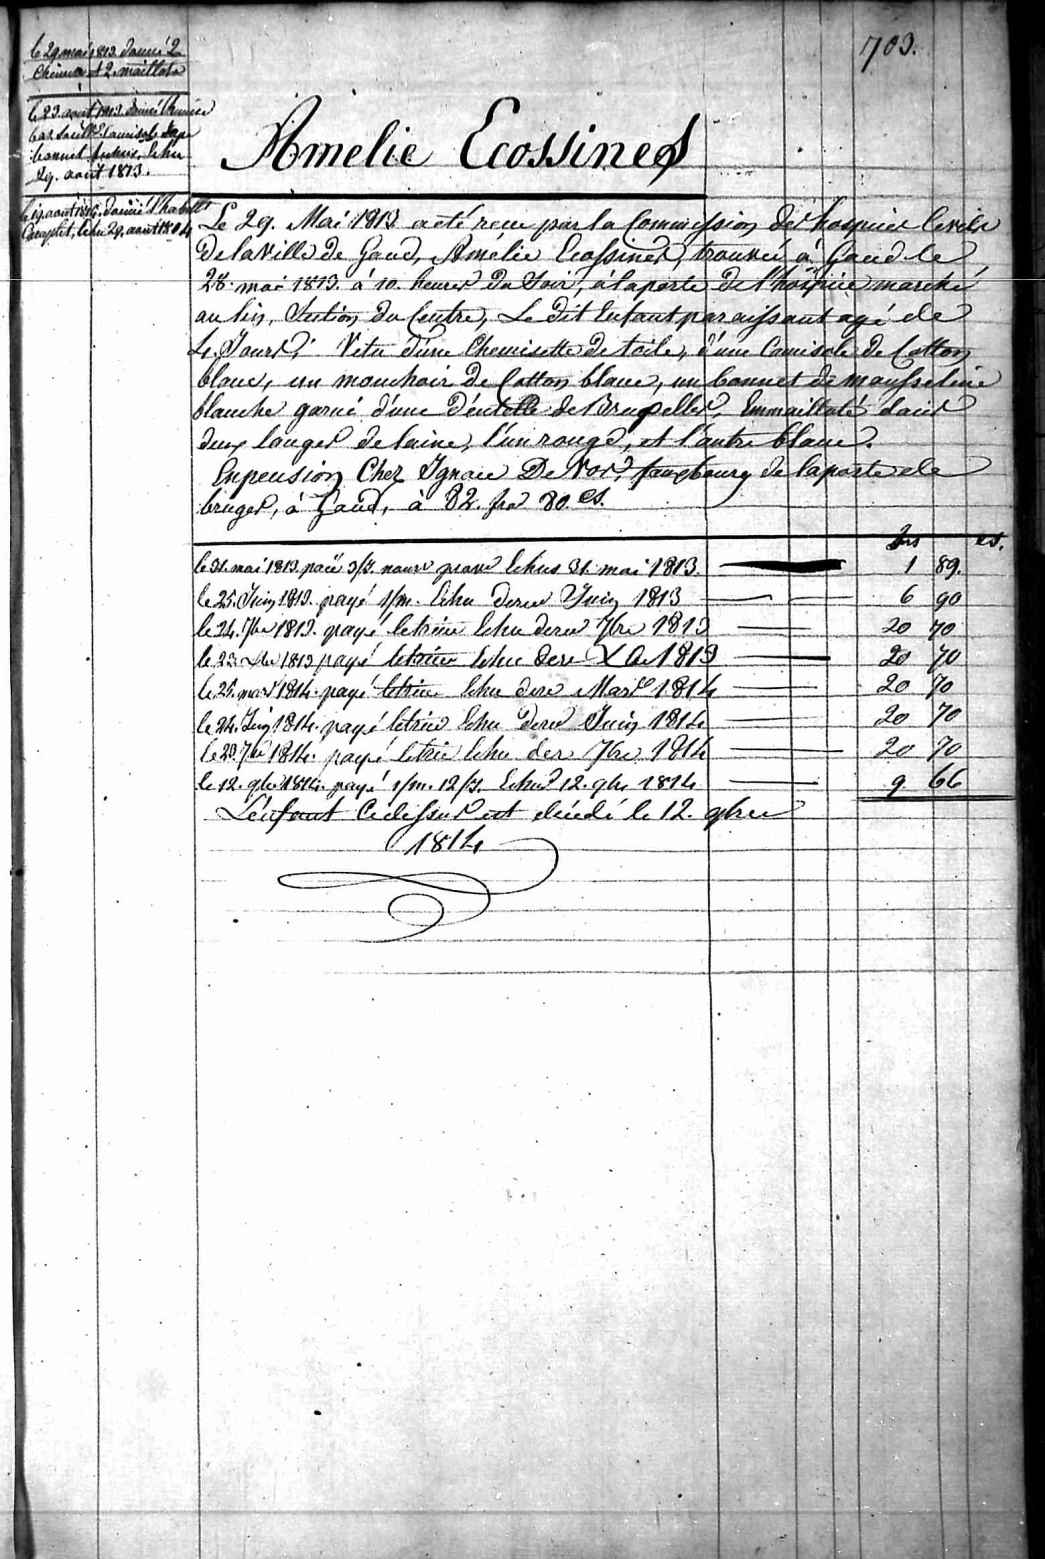 703.
le 29 mai 1813 donné 2
Chemises et 2 maillots
le 23. aout 1813. donné Chemise
bas camisole
bonnet echu
29. aout 1813.
donné l'habillt
Complet, echu 29. aout 1814
Amelie Ecossines
Le 29. Mai 1813 a eté recue par la Commission des hospices Civils
de la Ville de Gand, Amélie Ecossines, trouvée à Gand le
28. mai 1813. à 10. heures du Soir, à la porte de l'hospice marché
au lin, Section du Centre, Le dit Enfant paraissant agé de
4. Jours, Vetu d'une Chemisette de toile, d'une Camisole de Cotton
blanc, un mouchoir de Cotton blanc, un bonnet de mousseline
blanche garni d'une déntelle de Bruxelles, Emmailloté dans
deux langes de laine, l'un rouge, et l'autre blanc.
En pension Chez Ignace De Vos, fauxbourg de la porte de
bruges, à Gand, à 82. frs 80. cs.
frs cs.
le 31. mai 1813. paié 3/j. nourr echus 31. mai 1813. 1 89.
le 25. Juin 1813. payé 1/m. Echu derer Juin 1813 6 90
le 24. 7bre 1813. payé letrim Echu derer 7bre 1813 20 70
le 23 Xbre 1813 payé letrim echu dere Xbre 1813 20 70
le 25. mars 1814. payé letrim Echu dere Mars 1814 20 70
le 24. Juin 1814. payé letrim Echu derer Juin 1814 20 70
le 23 7bre 1814. payé letrim Echu der 7bre 1814 20 70
le 12. 9bre 1814. payé 1/m. 12/j. Echus 12. 9bre 1814 9 66
L'énfant Cidessus est décédé le 12. 9bre
1814